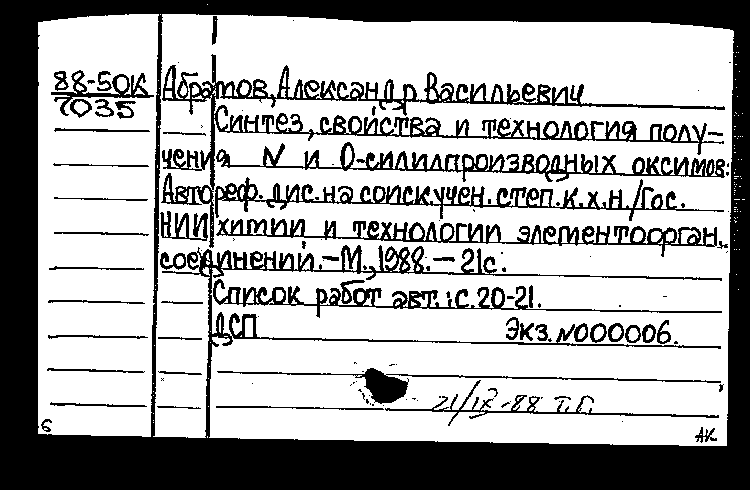 88-50К Абрамов, Александр Васильевич
7035
Синтез, свойства и технология полу-
чения N и О-силилпроизводных оксимов:
Автореф. дис. на соиск. учен. степ. к.х.н./Гос.
НИИ химии и технологии элементоорган.
соединений.-М., 1988.-21с.
Список работ авт.: с. 20-21.
ДСП Экз. N000006.
21/IX-88 Т.Г.
6 АК